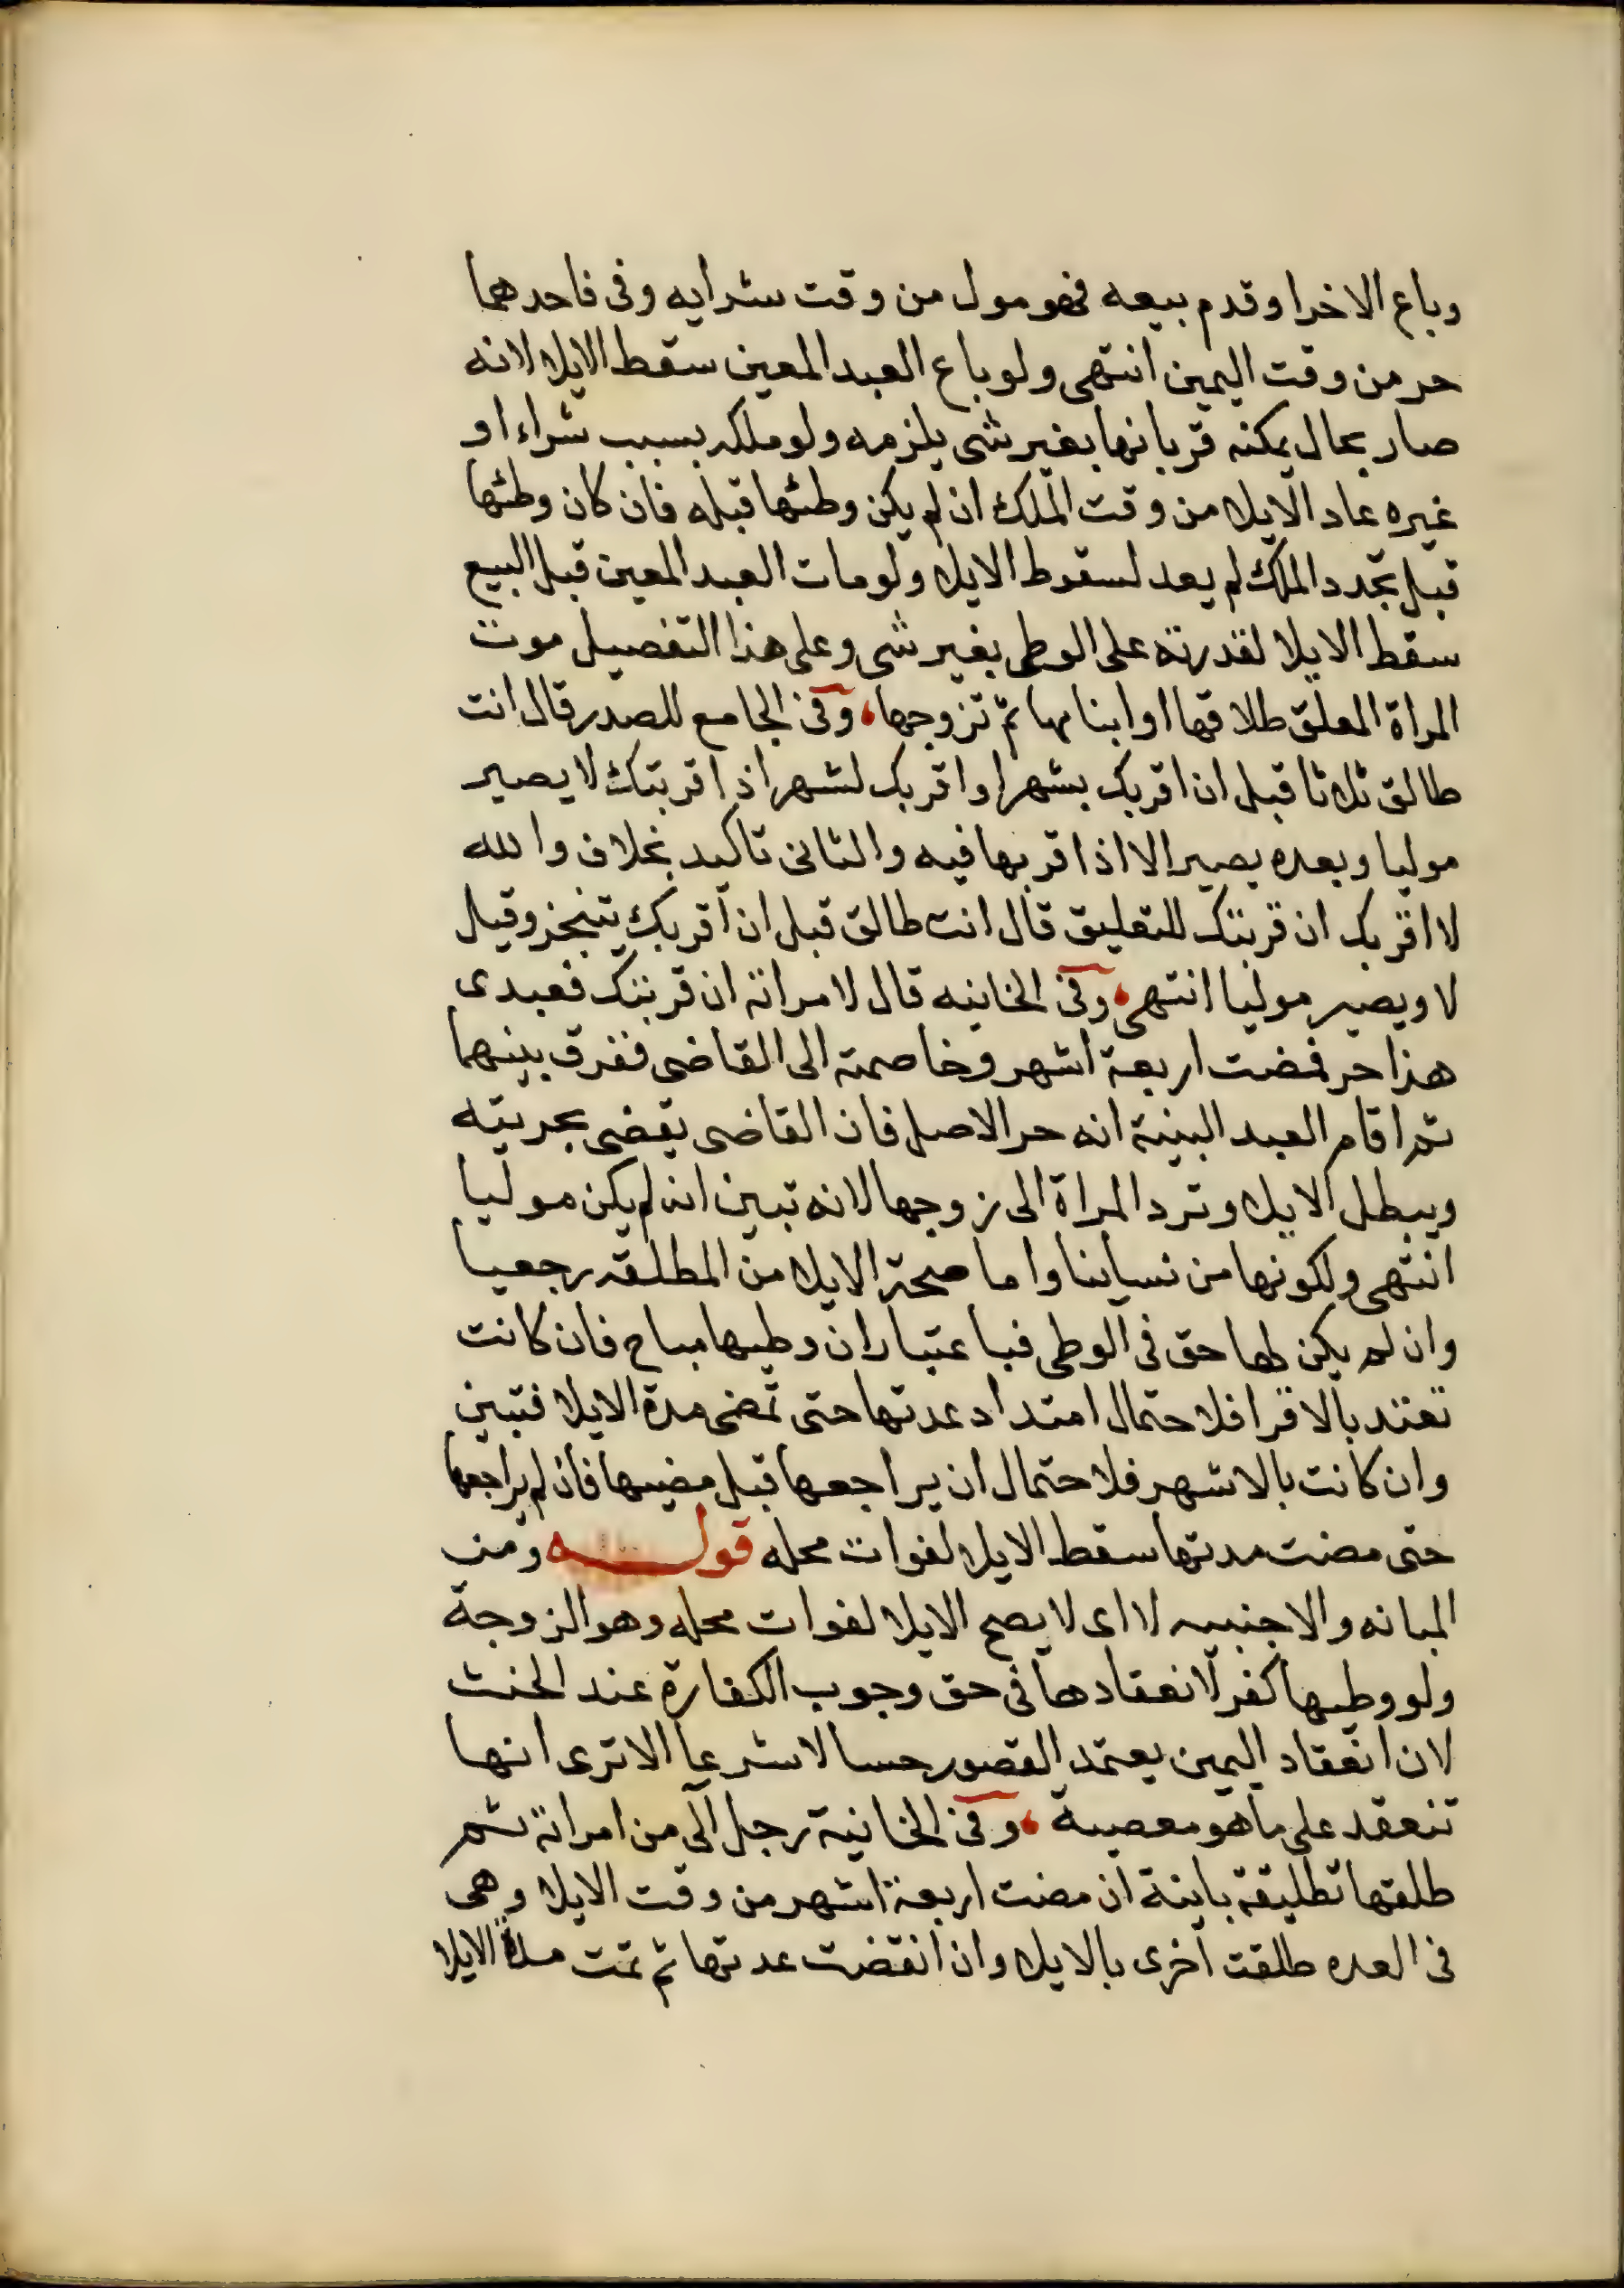 وباع الاخر او قدم بيعه فهو مول من وقت شرايه وفى فاحدهما
حر من وقت اليمين انتهى ولو باع العبد المعين سقط الايلا لانه
صار بحال يمكنه قربانها بغير شى يلزمه ولو ملكه بسبب شراء او
غيره عاد الايلا من وقت الملك ان لم يكن وطئها قبله فان كان وطئها
قبل تجدد الملك لم يعد لسقوط الايلا ولو مات العبد المعين قبل البيع
سقط الايلا لقدرته على الوطى بغير شى وعلى هذا التفصيل موت
المراة المعلق طلاقها او ابنانها ثم تزوجها، وفى الجامع للصدر قال انت
طالق ثلاثا قبل ان اقربك بشهر او اقربك لشهر اذا قربتك لا يصير
موليا وبعده يصير الا اذا قربها فيه والثانى تاكيد بخلاف والله
لا اقربك ان قربتك للتعليق قال انت طالق قبل ان اقربك يتنجز وقيل
لا ويصير موليا انتهى، وفى الخانيه قال لامراته ان قربتك فعبدى
هذا حر فمضت اربعة اشهر وخاصمته الى القاضى ففرق بينهما
ثم اقام العبد البينة انه حر الاصل فان القاضى يقضى بحريته
ويبطل الايلا وترد المراة الى زوجها لانه تبين انه لم يكن موليا
انتهى ولكونها من نساينا واما صحة الايلا من المطلقه رجعيا
وان لم يكن لها حق فى الوطى فباعتبار ان وطيها مباح فان كانت
تعتد بالاقرا فلاحتمال امتداد عدتها حتى تمضى مدة الايلا فتبين
وان كانت بالاشهر فلاحتمال ان يراجعها قبل مضيها فان لم يراجعها
حتى مضت مدتها سقط الايلا لفوات محله قوله ومن
المبانه والاجنبيه لا اى لا يصح الايلا لفوات محله وهو الزوجة
ولو وطيها كفر لانعقادها فى حق وجوب الكفارة عند الحنث
لان انعقاد اليمين يعتمد القصور حسا لا شرعا الا ترى انها
تنعقد على ما هو معصية، وفى الخانية رجل آلى من امراته ثم
طلقها تطليقة باينة ان مضت اربعة اشهر من وقت الايلا وهى
فى العده طلقت اخرى بالايلا وان انقضت عدتها ثم تمت مدة الايلا